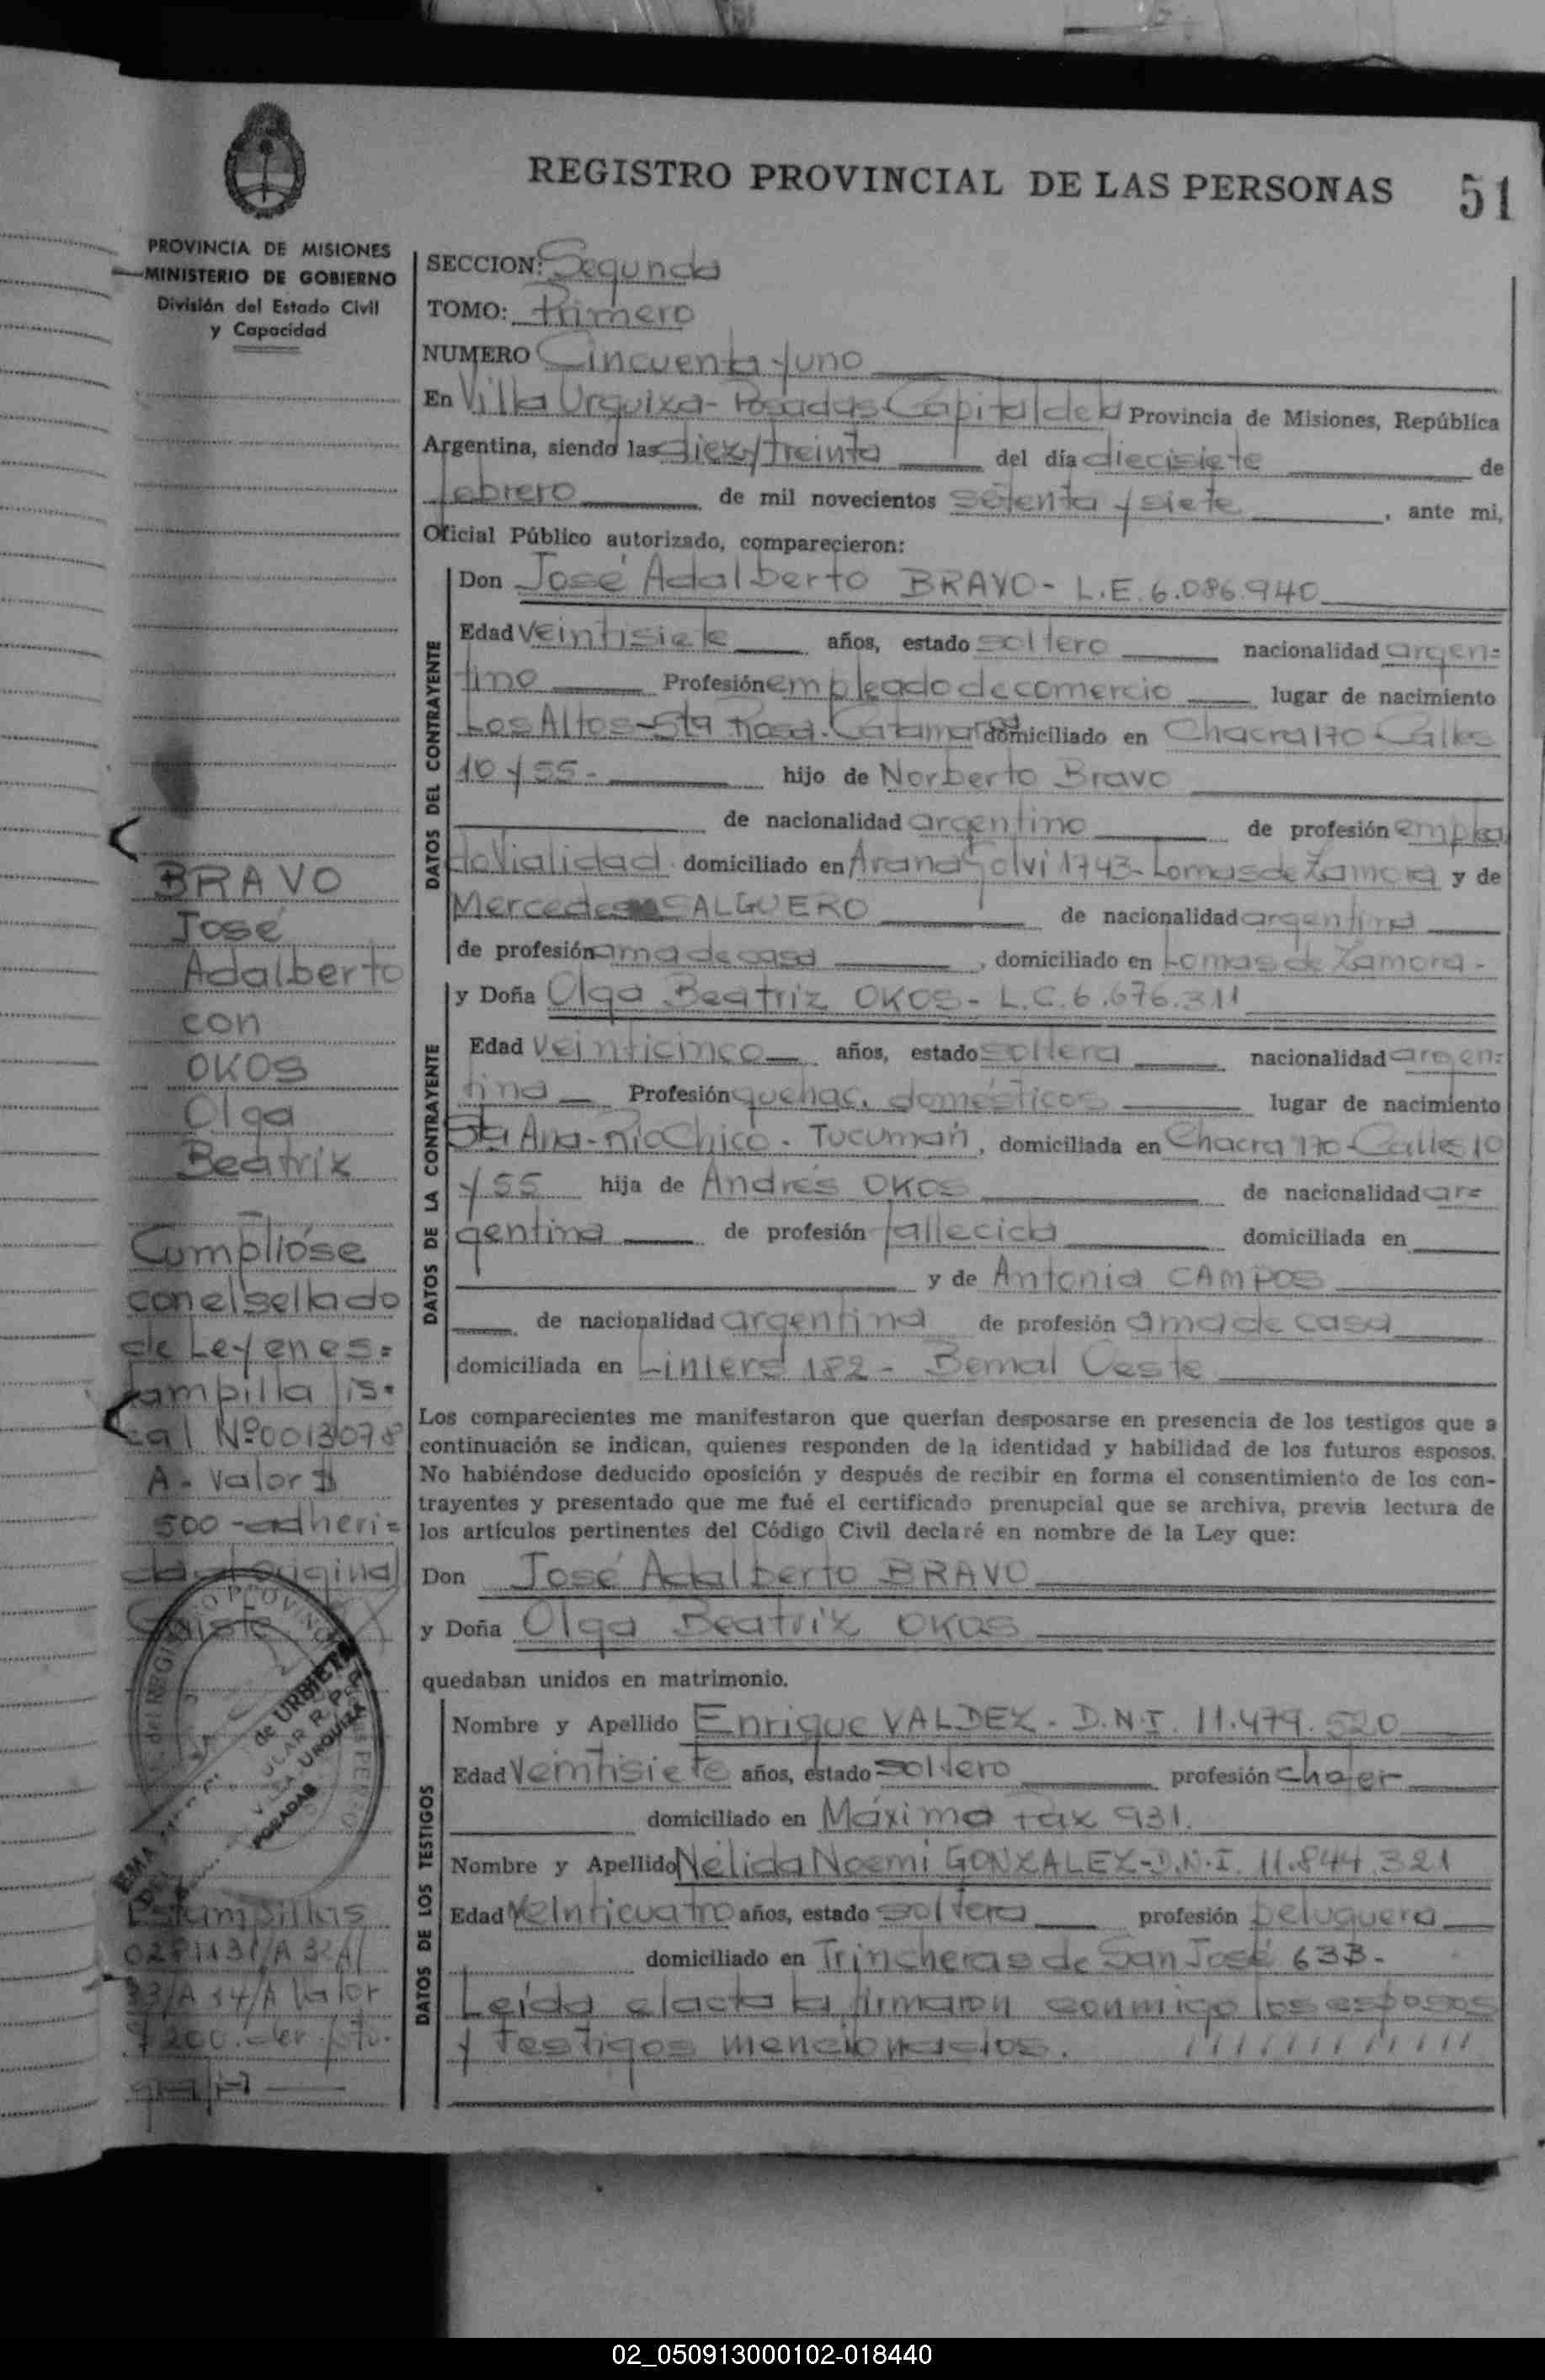 REGISTRO PROVINCIAL DE LAS PERSONAS 51
PROVINCIA DE MISIONES
MINISTERIO DE GOBIERNO
División del Estado Civil
y Capacidad
SECCION: Segunda
TOMO: Primero
NUMERO Cincuenta y uno
En Villa Urquiza - Posadas Capital de la Provincia de Misiones, República
Argentina, siendo las diez y treinta del día diecisiete de
febrero de mil novecientos setenta y siete, ante mi,
Oficial Público autorizado, comparecieron:
DATOS DEL CONTRAYENTE
Don José Adalberto BRAVO - L.E. 6.086.940
Edad veintisiete años, estado soltero nacionalidad argen=
tino Profesión empleado de comercio lugar de nacimiento
Los Altos - Sta Rosa. Catamarca domiciliado en Chacra 170 - Calles
10 y 55 - hijo de Norberto Bravo
de nacionalidad argentino de profesión emplea
do Vialidad domiciliado en Arana Golvi 1743 - Lomas de Zamora y de
Mercedes SALGUERO de nacionalidad argentina
de profesión ama de casa, domiciliado en Lomas de Zamora -
DATOS DE LA CONTRAYENTE
y Doña Olga Beatriz OKOS - L.C. 6.676.311
Edad veinticinco años, estado soltera nacionalidad argen=
tina Profesión quehac. domésticos lugar de nacimiento
Sta Ana - Río Chico - Tucumán, domiciliada en Chacra 170 - Calles 10
y 55 hija de Andrés OKOS de nacionalidad ar=
gentina de profesión fallecido domiciliada en
y de Antonia CAMPOS
de nacionalidad argentina de profesión ama de casa
domiciliada en Liniers 182 - Bernal Oeste
Los comparecientes me manifestaron que querían desposarse en presencia de los testigos que a
continuación se indican, quienes responden de la identidad y habilidad de los futuros esposos.
No habiéndose deducido oposición y después de recibir en forma el consentimiento de los con-
trayentes y presentado que me fué el certificado prenupcial que se archiva, previa lectura de
los artículos pertinentes del Código Civil declaré en nombre de la Ley que:
Don José Adalberto BRAVO
y Doña Olga Beatriz OKOS
quedaban unidos en matrimonio.
DATOS DE LOS TESTIGOS
Nombre y Apellido Enrique VALDEZ - D.N.I. 11.479.520
Edad veintisiete años, estado soltero profesión chofer
domiciliado en Máximo Pax 931.
Nombre y Apellido Nélida Noemi GONZALEZ - D.N.I. 11.844.321
Edad veinticuatro años, estado soltera profesión peluquera
domiciliado en Trincheras de San José 633 -
Leída el acta la firmaron conmigo los esposos
y testigos mencionados.
BRAVO
José
Adalberto
con
OKOS
Olga
Beatriz
Cumplióse
con el sellado
de Ley en es=
tampilla fis-
cal Nº 0013078
A - Valor $
500 - adheri=
da al original
Conste
de URBIETA
VILLA URQUIZA
POSADAS
Estampillas
Valor
$200.
02_050913000102-018440